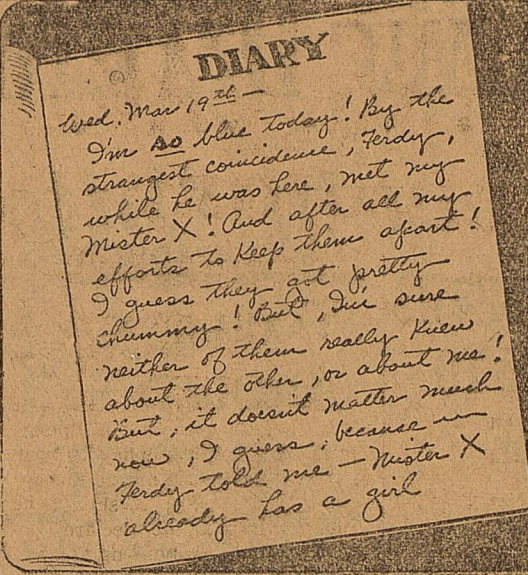 DIARY
Wed. Mar 19th —
I'm so blue today! By the
strangest coincidence, Ferdy,
while he was here, met my
Mister X! And after all my
efforts to keep them apart!
I guess they got pretty
chummy! But, I'm sure
neither of them really knew
about the other, or about me!
But, it doesn't matter much
now, I guess, because
Ferdy told me — Mister X
already has a girl